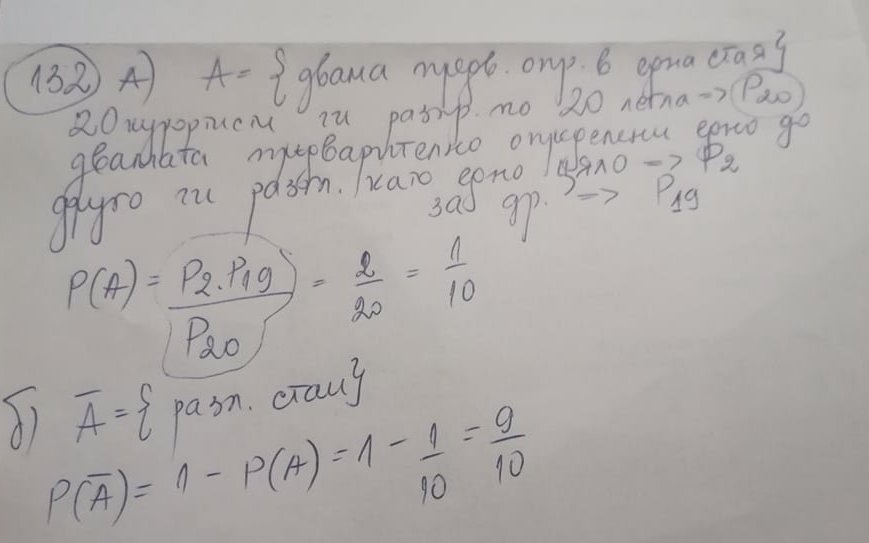 132 А) A = { двама предв. опр. в една стая}
20 курортисти ги разпр. по 20 легла => P20
двамата предварително определени едно до
друго ги разгл. като едно цяло => P2
за др. => P19
P(A) = P2.P19 / P20 = 2/20 = 1/10
б) Ā = { разл. стаи}
P(Ā) = 1 - P(A) = 1 - 1/10 = 9/10